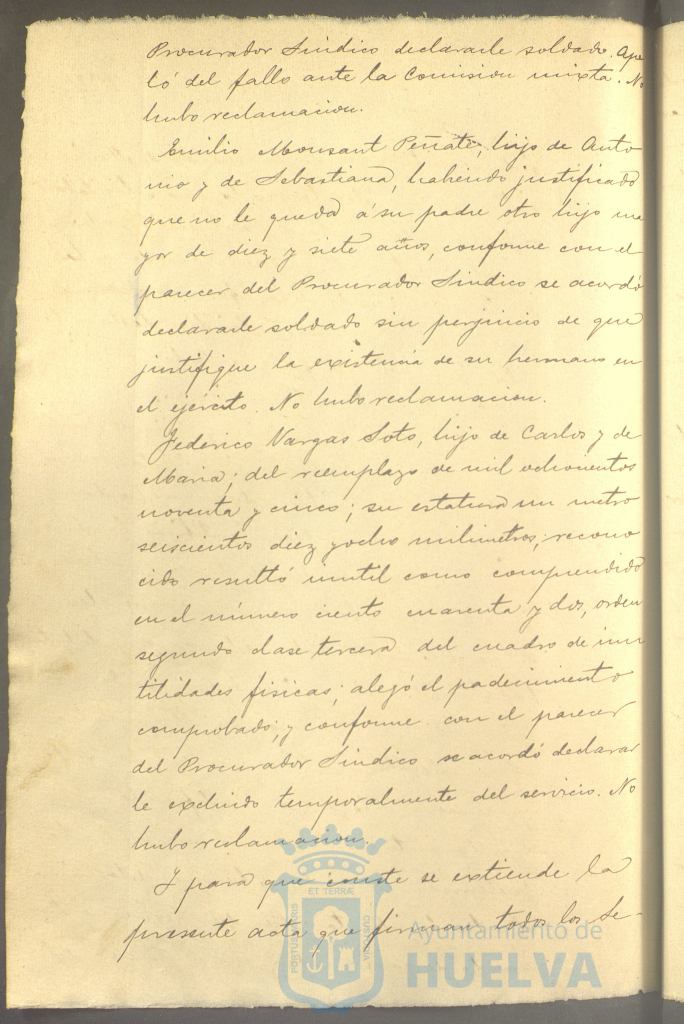 Procurador Síndico declararle soldado. Ape
ló del fallo ante la Comision mixta. No
hubo reclamacion.
Emilio Monsant Peñate, hijo de Anto
nio y de Sebastiana, habiendo justificado
que no le queda á su padre otro hijo ma
yor de diez y siete años, conforme con el
parecer del Procurador Sindico se acordó
declararle soldado sin perjuicio de que
justifique la existencia de su hermano en
el ejército. No hubo reclamacion.
Federico Vargas Soto, hijo de Carlos y de
Maria; del reemplazo de mil ochocientos
noventa y cinco; su estatura un metro
seiscientos diez y ocho milimetros; recono
cido resultó inutil como comprendido
en el número ciento cuarenta y dos, orden
segundo clase tercera del cuadro de inu
tilidades fisicas; alegó el padecimiento
comprobado; y conforme con el parecer
del Procurador Sindico se acordó declarar
le excluido temporalmente del servicio. No
hubo reclamacion.
Y para que conste se extiende la
presente acta que firman todos los Se-
PORTUS MARIS
ET TERRÆ
CUSTODIA
Ayuntamiento de
HUELVA